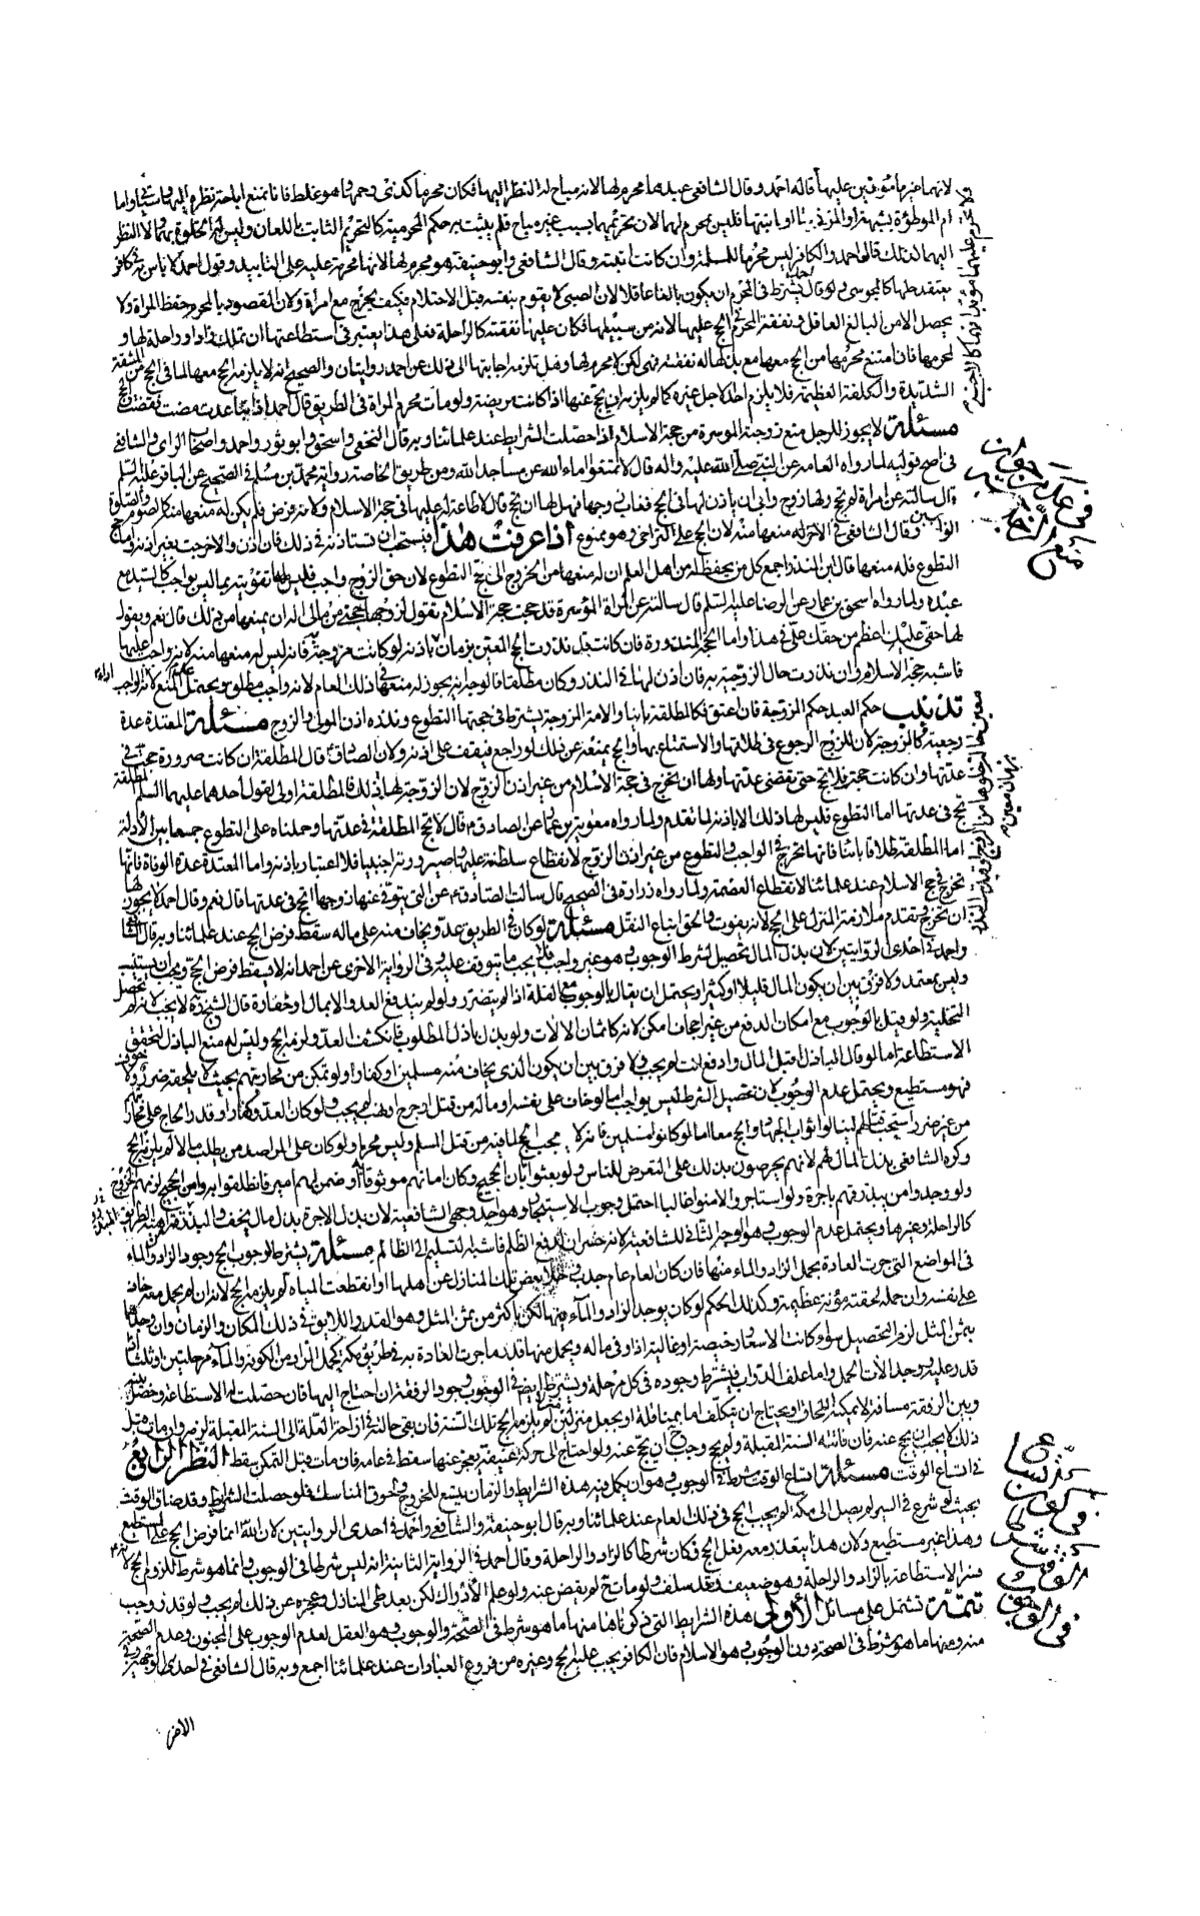 لانهما غير مأمونين عليها قاله احمد وقال الشافعي عبدها محرم لها لانه مباح له النظر اليها فكان محرما كذي رحمها وهو غلط فانا نمنع اباحة نظره اليها وسيأتي واما
ام الموطوءة بشبهة او المزني بها او ابنتها فليس بمحرم لهما لان تحريمهما بسبب غير مباح فلم يثبت به حكم المحرمية كالتحريم الثابت باللعان وليس له الخلوة بهما ولا النظر
اليهما لذلك قاله احمد والكافر ليس محرما للمسلمة وان كانت ابنته وقال الشافعي وابو حنيفة هو محرم لها لانها محرمة عليه على التابيد وقول احمد لا باس به في كافر
يعتقد حلها كالمجوسي ولو قال يشترط في المحرم ان يكون بالغا عاقلا لان الصبي لا يقوم بنفسه قبل الاحتلام فكيف يخرج مع امرأة ولان المقصود بالمحرم حفظ المراة ولا
يحصل الا من البالغ العاقل ونفقة المحرم في الحج عليها لانه من سبيلها فكان عليها نفقته كالراحلة فعلى هذا يعتبر في استطاعتها ان تملك زادا وراحلة لها و
لمحرمها فان امتنع محرمها من الحج معها مع بذلها له نفقته فهي كمن لا محرم لها وهل تلزمه اجابتها الى ذلك عن احمد روايتان والصحيح انه لا يلزمه الحج معها لما في الحج من المشقة
الشديدة والكلفة العظيمة فلا يلزم احدا لاجل غيره كما لم يلزمه ان يحج عنها اذا كانت مريضة ولو مات محرم المراة في الطريق قال احمد اذا تباعدت مضت فقضت الحج
مسئلة لا يجوز للرجل منع زوجته الموسرة من حجة الاسلام اذا حصلت الشرايط عند علمائنا وبه قال النخعي واسحق وابو ثور واحمد واصحاب الراي والشافعي
في اصح قوليه لما رواه العامة عن النبي صلى الله عليه واله قال لا تمنعوا اماء الله عن مساجد الله ومن طريق الخاصة رواية محمد بن مسلم في الصحيح عن الباقر عليه السلم
قال سالته عن امراة لم تحج ولها زوج وابى ان ياذن لها في الحج فغاب زوجها فهل لها ان تحج قال لا طاعة له عليها في حجة الاسلام ولانه فرض فلم يكن له منعها منه كالصوم والصلوة
الواجبين وقال الشافعي في الاخر له منعها منه لان الحج على التراخي وهو ممنوع اذا عرفت هذا فيستحب ان تستاذنه في ذلك فان اذن والا خرجت بغير اذنه واما حج
التطوع فله منعها قال ابن المنذر اجمع كل من يحفظ له من اهل العلم ان له منعها من الخروج الى حج التطوع لان حق الزوج واجب فليس لها تفويته بما ليس بواجب كالسيد مع
عبده ولما رواه اسحق بن عمار عن الرضا عليه السلم قال سالته عن المراة الموسرة قد حجت حجة الاسلام تقول لزوجها احجني من مالي اله ان يمنعها من ذلك قال نعم ويقول
لها حقي عليك اعظم من حقك علي في هذا واما الحج المنذورة فان كانت قبل نذرت الحج المعين بزمان باذنه لو كانت مزوجة فانه ليس له منعها منه لانه واجب عليها
فاشبه حجة الاسلام وان نذرت حال الزوجية به فان اذن لها في النذر وكان مطلقا فالوجه انه يجوز له منعها في ذلك العام لانه واجب مطلق ويحتمل عدم المنع لانه اداء واجب
تذنيب حكم العبد حكم المزوجة فان اعتق فكالمطلقة باينا والامة المزوجة يشترط في حجتها التطوع ونذره اذن المولى والزوج مسئلة المعتدة عدة
رجعية كالزوجة لان للزوج الرجوع في طلاقها والاستمتاع بها والحج يمنعه عن ذلك لو راجع فيقف على اذنه ولان الصادق ع قال المطلقة ان كانت صرورة حجت في
عدتها وان كانت حجت فلا تحج حتى تقضي عدتها ولها ان تخرج في حجة الاسلام من غير اذن الزوج لان الزوجة لها ذلك فالمطلقة اولى لقول احدهما عليهما السلم المطلقة
تحج في عدتها اما التطوع فليس لها ذلك الا باذنه لما تقدم ولما رواه معوية بن عمار عن الصادق ع قال لا تحج المطلقة في عدتها وحملناه على التطوع جمعا بين الادلة
اما المطلقة طلاقا بائنا فانها تخرج في الواجب والتطوع من غير اذن الزوج لانقطاع سلطنته عليها وصيرورته اجنبيا فلا اعتبار باذنه واما المعتدة عدة الوفاة فانها
تخرج في حج الاسلام عند علمائنا لانقطاع العصمة ولما رواه زرارة في الصحيح قال سالت الصادق ع عن التي يتوفى عنها زوجها اتحج في عدتها قال نعم وقال احمد لا يجوز لها
ان تخرج وتقدم ملازمة المنزل على الحج لانه يفوت والحق اتباع النقل مسئلة لو كان في الطريق عدو يخاف منه على ماله سقط فرض الحج عند علمائنا وبه قال الشافعي
واحمد في احدى الروايتين لان بذل المال تحصيل لشرط الوجوب وهو غير واجب فلا يجب ما يتوقف عليه وفي الرواية الاخرى عن احمد انه لا يسقط فرض الحج ويجب ان يستنيب
وليس بمعتمد ولا فرق بين ان يكون المال قليلا او كثيرا ويحتمل ان يقال بالوجوب مع القلة اذا لم يتضرر ولو لم يندفع العدو الا بمال او خفارة قال الشيخ ره لا يجب لانه لم تحصل
التخلية ولو قيل بالوجوب مع امكان الدفع من غير اجحاف امكن لانه كاثمان الالات ولو بذل باذل المطلوب فانكشف العدو لزمه الحج وليس له منع الباذل لتحقق
الاستطاعة اما لو قال الباذل اقبل المال وادفع انت لم يجب ولا فرق بين ان يكون الذي يخاف منه مسلمين او كفارا ولو تمكن من محاربتهم بحيث لا يلحقه ضرر ولا خوف
فهو مستطيع ويحتمل عدم الوجوب لان تحصيل الشرط ليس بواجب اما لو خاف على نفسه او ماله من قتل او جرح او نهب لم يجب ولو كان العدو كفارا وقدر الحاج على محاربتهم
من غير ضرر استحب قتالهم لينالوا ثواب الجهاد والحج معا اما لو كانوا مسلمين فانه لا يجب الحج لما فيه من قتل المسلم وليس محرما ولو كان على المراصد من يطلب مالا لم يلزمه الحج
وكره الشافعي بذل المال لهم لانهم يحرصون بذلك على التعرض للناس ولو بعثوا بامان الحجيج وكان امانهم موثوقا به او ضمن لهم امير ما يطلبونه وامن الحجيج لزمهم الخروج
ولو وجدوا من يبذرقهم باجرة ولو استاجروا لامنوا غالبا احتمل وجوب الاستيجار وهو احد وجهي الشافعية لان بذل الاجرة بذل مال بحق والبذرقة اهبة الطريق
كالراحلة وغيرها ويحتمل عدم الوجوب وهو الوجه الثاني للشافعية لانه خسران لدفع الظلم فاشبه التسليم الى الظالم مسئلة يشترط لوجوب الحج وجود الزاد والماء
في المواضع التي جرت العادة بحمل الزاد والماء منها فان كان العام عام جدب وخلا بعض تلك المنازل عن اهلها او انقطعت المياه لم يلزمه الحج لانه ان لم يحمل معه خاف
على نفسه وان حمله لحقته مؤنة عظيمة وكذلك الحكم لو كان يوجد الزاد والماء فيها لكن باكثر من ثمن المثل وهو القدر اللايق في ذلك المكان والزمان وان وجدهما
بثمن المثل لزم التحصيل سواء كانت الاسعار رخيصة او غالية اذا وفى ماله ويحمل منها قدر ما جرت العادة به في طريق مكة كحمل الزاد من الكوفة والماء مرحلتين او ثلثا اذا
قدر عليه ووجد الات الحمل واما علف الدواب فيشترط وجوده في كل مرحلة ويشترط ايضا في الوجوب وجود الرفقة ان احتاج اليها فان حصلت له الاستطاعة وحصل بينه
وبين الرفقة مسافة لا يمكنه اللحاق او يحتاج ان يتكلف اما بمناقلة او بجعل منزلين منزلا لم يلزمه الحج تلك السنة فان بقي حالته في ازاحة العلة الى السنة المقبلة لزمه وان مات قبل
ذلك لا يجب ان يحج عنه فان فاتته السنة المقبلة ولم يحج وجب ان يحج عنه ولو احتاج الى حركة عنيفة يعجز عنها سقط في عامه فان مات قبل التمكن سقط النظر الرابع
في اتساع الوقت مسئلة اتساع الوقت شرط في الوجوب وهو ان يكمل فيه هذه الشرايط والزمان يتسع للخروج ولحوق المناسك فلو حصلت الشرايط وقد ضاق الوقت
بحيث لو شرع في السير لم يصل الى مكة لم يجب الحج في ذلك العام عند علمائنا وبه قال ابو حنيفة والشافعي واحمد في احدى الروايتين لان الله تعالى انما فرض الحج على المستطيع
وهذا غير مستطيع ولان هذا يتعذر معه فعل الحج فكان شرطا كالزاد والراحلة وقال احمد في الرواية الثانية انه ليس شرطا في الوجوب وانما هو شرط للزوم الحج لانه ع
فسر الاستطاعة بالزاد والراحلة وهو ضعيف وقد سلف ولو مات ح لم يقض عنه ولو علم الادراك لكن بعد طي المنازل وعجزه عن ذلك لم يجب ولو قدر وجب
تتمة تشتمل على مسائل الأولى هذه الشرايط التي ذكرناها منها ما هو شرط في الصحة والوجوب وهو العقل لعدم الوجوب على المجنون وعدم الصحة
منه ومنها ما هو شرط في الصحة دون الوجوب وهو الاسلام فان الكافر يجب عليه الحج وغيره من فروع العبادات عند علمائنا اجمع وبه قال الشافعي في احدى الوجهين وفي
الاخر